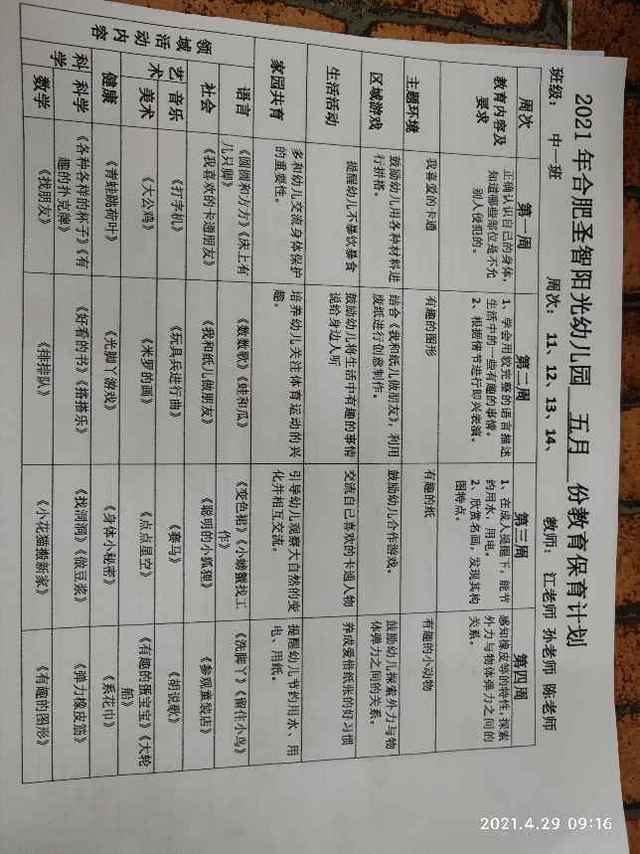 2021年合肥圣智阳光幼儿园 五月 份教育保育计划
班级： 中一班 周次： 11、12、13、14、 教师： 江老师 孙老师 陈老师
周次 第一周 第二周 第三周 第四周
教育内容及要求
正确认识自己的身体，知道哪些部位是不允别人侵犯的。
1、学会用较完整的语言描述生活中的一些有趣的事情。
2、根据情节进行即兴表演。
1、在成人提醒下，能节约用水，用电。
2、欣赏名画，发现其构图特点。
感知橡皮等的特性，探索外力与物体弹力之间的关系。
主题环境 我喜爱的卡通 有趣的图形 有趣的纸 有趣的小动物
区域游戏
鼓励幼儿用各种材料进行拼搭。
结合《我和纸儿做朋友》，利用废纸进行创意制作。
鼓励幼儿合作游戏。
鼓励幼儿探索外力与物体弹力之间的关系。
生活活动
提醒幼儿不暴饮暴食
鼓励幼儿将生活中有趣的事情说给身边人听
交流自己喜欢的卡通人物
养成爱惜纸张的好习惯
家园共育
多和幼儿交流身体保护的重要性。
培养幼儿关注体育运动的兴趣。
引导幼儿观察大自然的变化并相互交流。
提醒幼儿节约用水、用电、用纸。
领域活动内容
语言 《圆圆和方方》《床上有几只脚》 《数数歌》《娃和瓜》 《变色裙》《小螃蟹找工作》 《洗脚丫》《留住小鸟》
社会 《我喜欢的卡通朋友》 《我和纸儿做朋友》 《聪明的小狐狸》 《参观童装店》
艺术 音乐 《打字机》 《玩具兵进行曲》 《赛马》 《胡说歌》
美术 《大公鸡》 《米罗的画》 《点点星空》 《有趣的蛋宝宝》《大轮船》
健康 《青蛙跳荷叶》 《光脚丫游戏》 《身体小秘密》 《系花巾》
科学 科学 《各种各样的杯子》《有趣的扑克牌》 《好看的书》《搭搭乐》 《找洞洞》《做豆浆》 《弹力橡皮筋》
数学 《找朋友》 《排排队》 《小花猫搬新家》 《有趣的图形》
2021.4.29 09:16